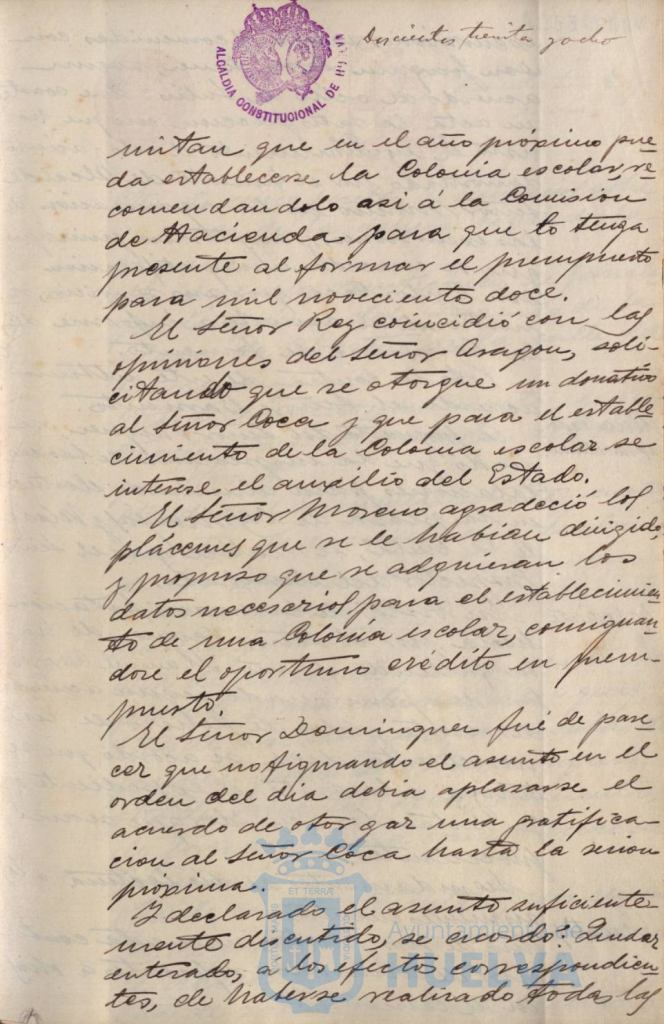 Doscientos treinta y ocho
ALCALDIA CONSTITUCIONAL DE HUELVA
mitan que en el año próximo pue-
da establecerse la Colonia escolar, re-
comendandolo asi á la Comision
de Hacienda para que lo tenga
presente al formar el presupuesto
para mil noveciento doce.
El Señor Rey coincidió con las
opiniones del Señor Aragon, soli-
citando que se otorgue un donativo
al Señor Coca y que para el estable-
cimiento de la Colonia escolar se
interese el auxilio del Estado.
El Señor Moreno agradeció los
plácemes que se le habian dirigido,
y propuso que se adquieran los
datos necesarios para el establecimien-
to de una Colonia escolar, consignan-
dose el oportuno crédito en presu-
puesto.
El Señor Dominguez fué de pare-
cer que no figurando el asunto en el
orden del dia debia aplazarse el
acuerdo de otorgar una gratifica-
cion al Señor Coca hasta la sesion
próxima.
Y declarado el asunto suficiente-
mente discutido, se acordó: Quedar
enterado, a los efectos correspondien-
tes, de haberse realizado todas las
ET TERRÆ
Ayuntamiento de
HUELVA